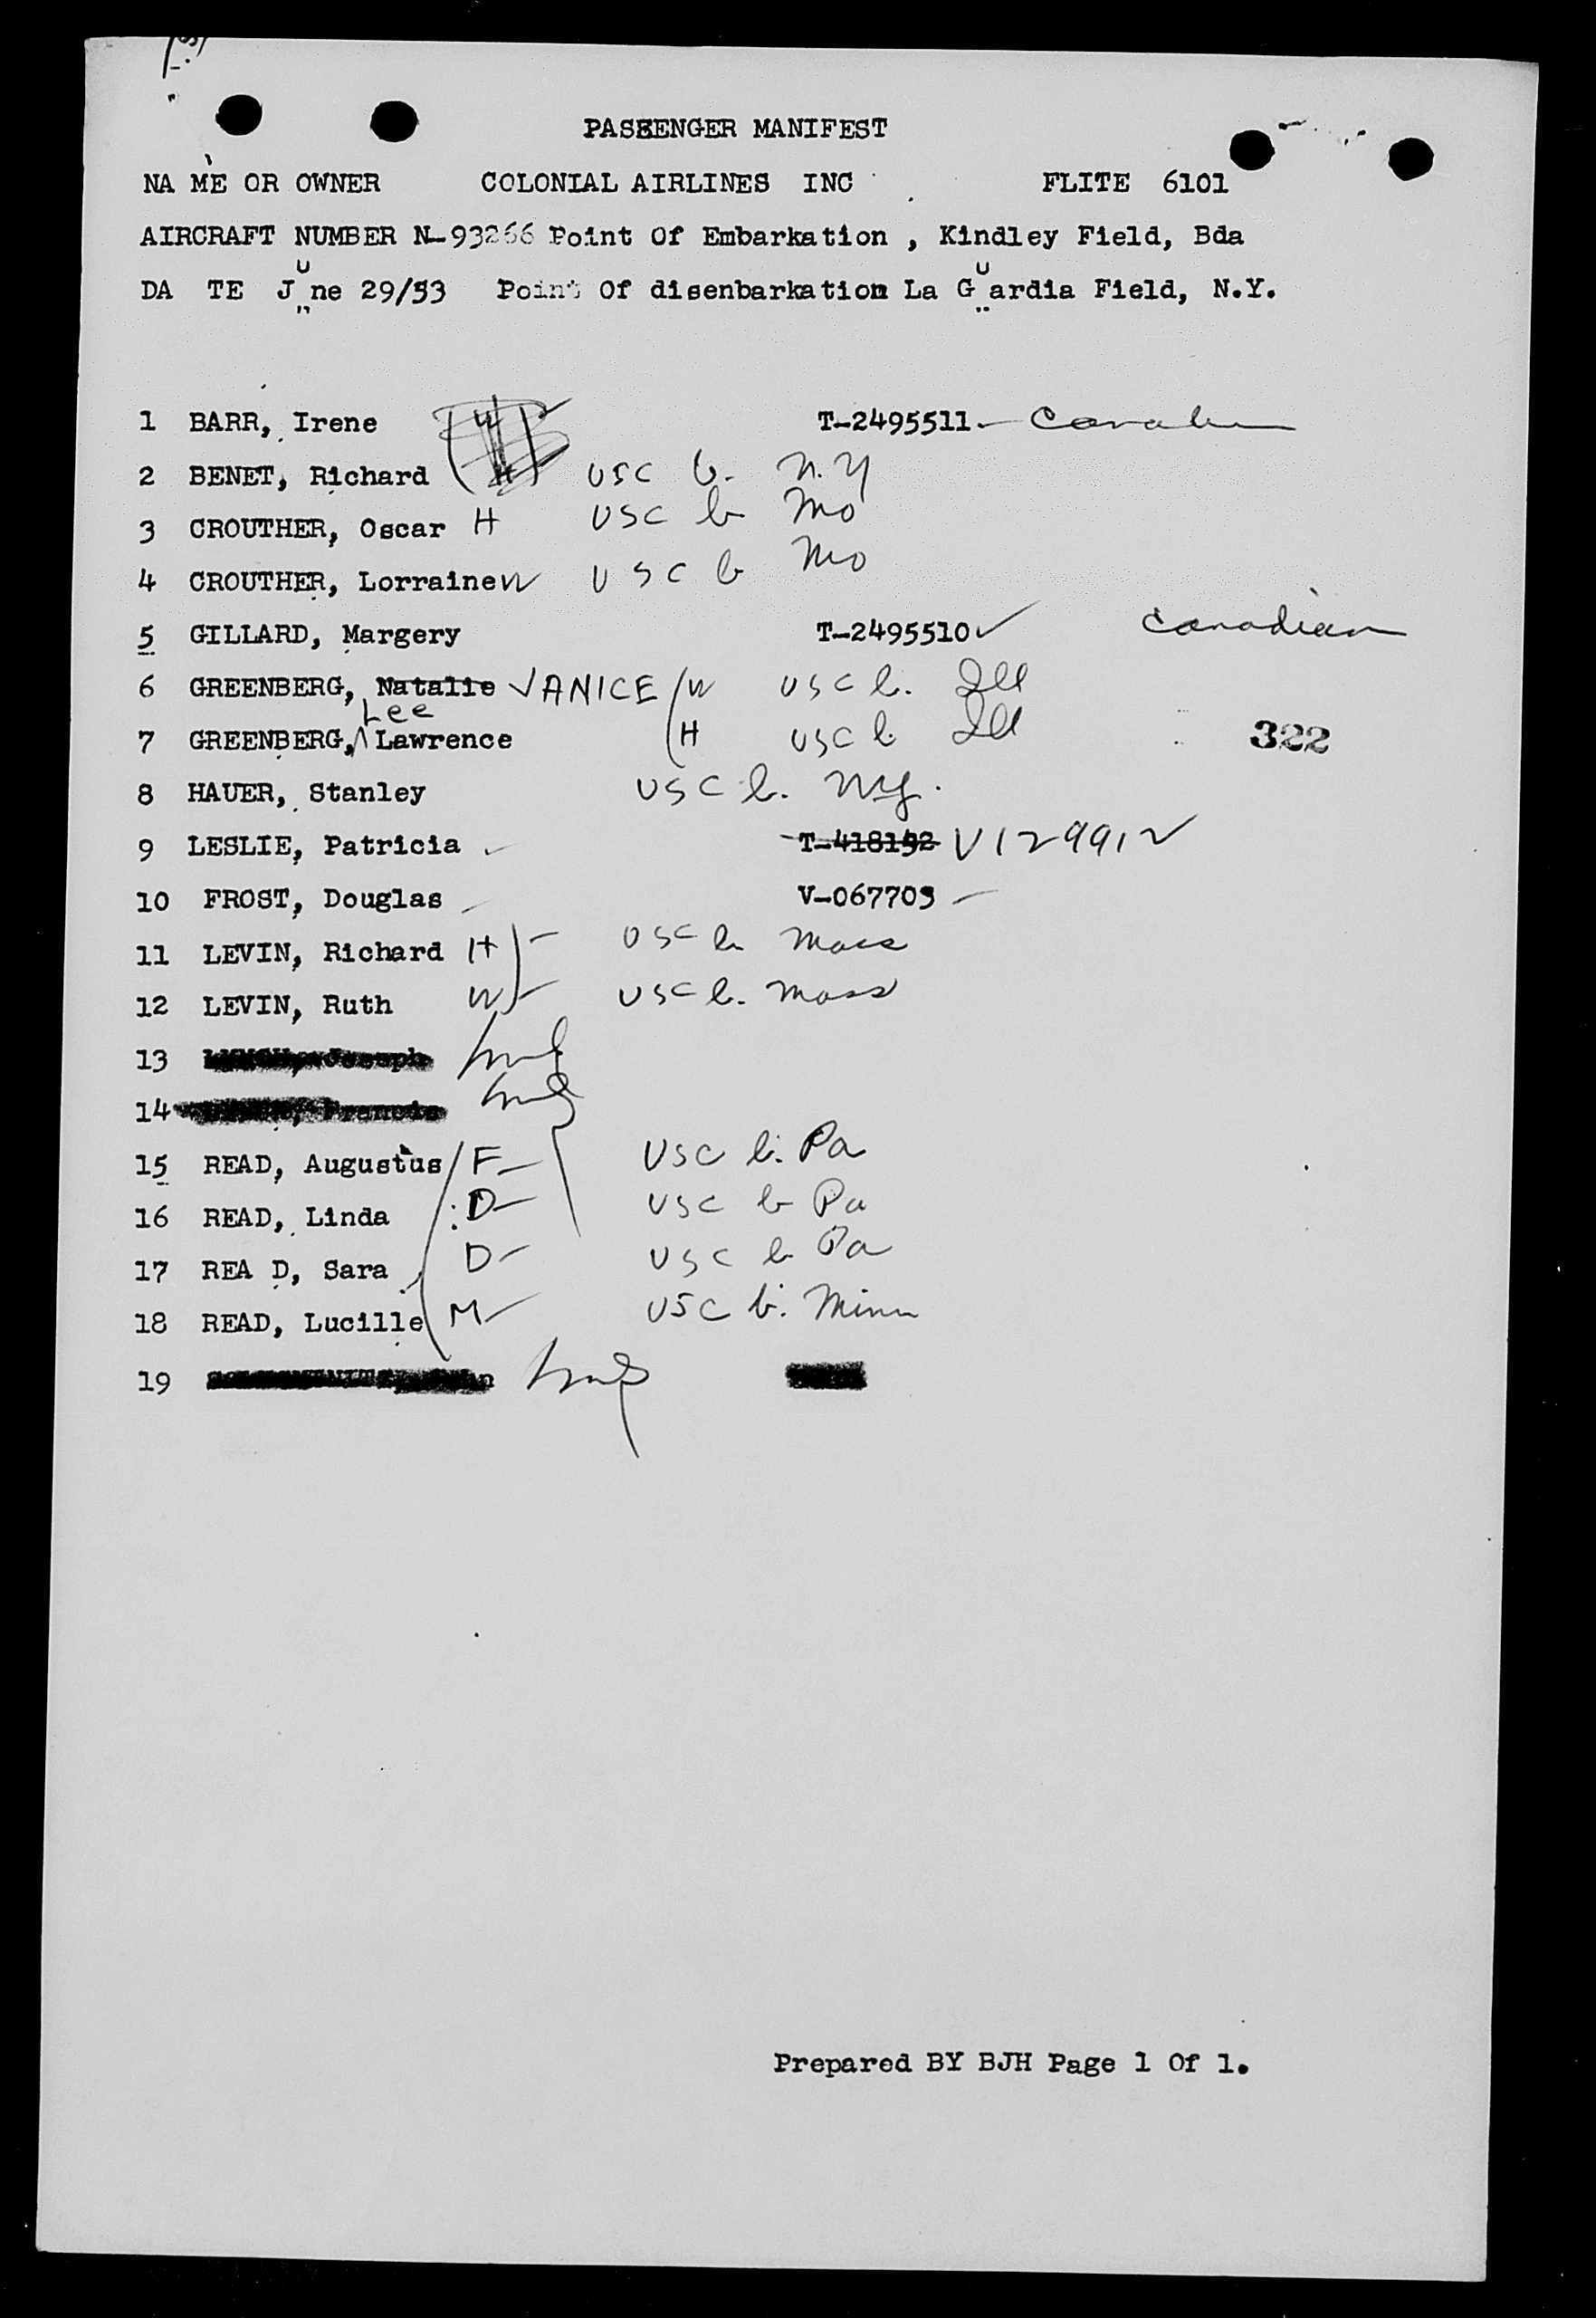 PASSENGER MANIFEST
NA ME OR OWNER COLONIAL AIRLINES INC FLITE 6101
AIRCRAFT NUMBER N-93266 Point Of Embarkation , Kindley Field, Bda
DA TE June 29/53 Point Of disenbarkation La Guardia Field, N.Y.
1 BARR, Irene W T-2495511
2 BENET, Richard H USC b. N.Y
3 CROUTHER, Oscar H USC b Mo
4 CROUTHER, Lorraine W USC b Mo
5 GILLARD, Margery T-2495510 Canadian
6 GREENBERG, Natalie JANICE W USC b. Ill
Lee
7 GREENBERG, Lawrence H USC b Ill 322
8 HAUER, Stanley USC b. NY.
9 LESLIE, Patricia T-418192 V129912
10 FROST, Douglas V-067703
11 LEVIN, Richard H USC b Mass
12 LEVIN, Ruth W USC b. Mass
13 Joseph
14 Francis
15 READ, Augustus F USC b. Pa
16 READ, Linda D USC b Pa
17 REA D, Sara D USC b Pa
18 READ, Lucille M USC b. Minn
19
Prepared BY BJH Page 1 Of 1.